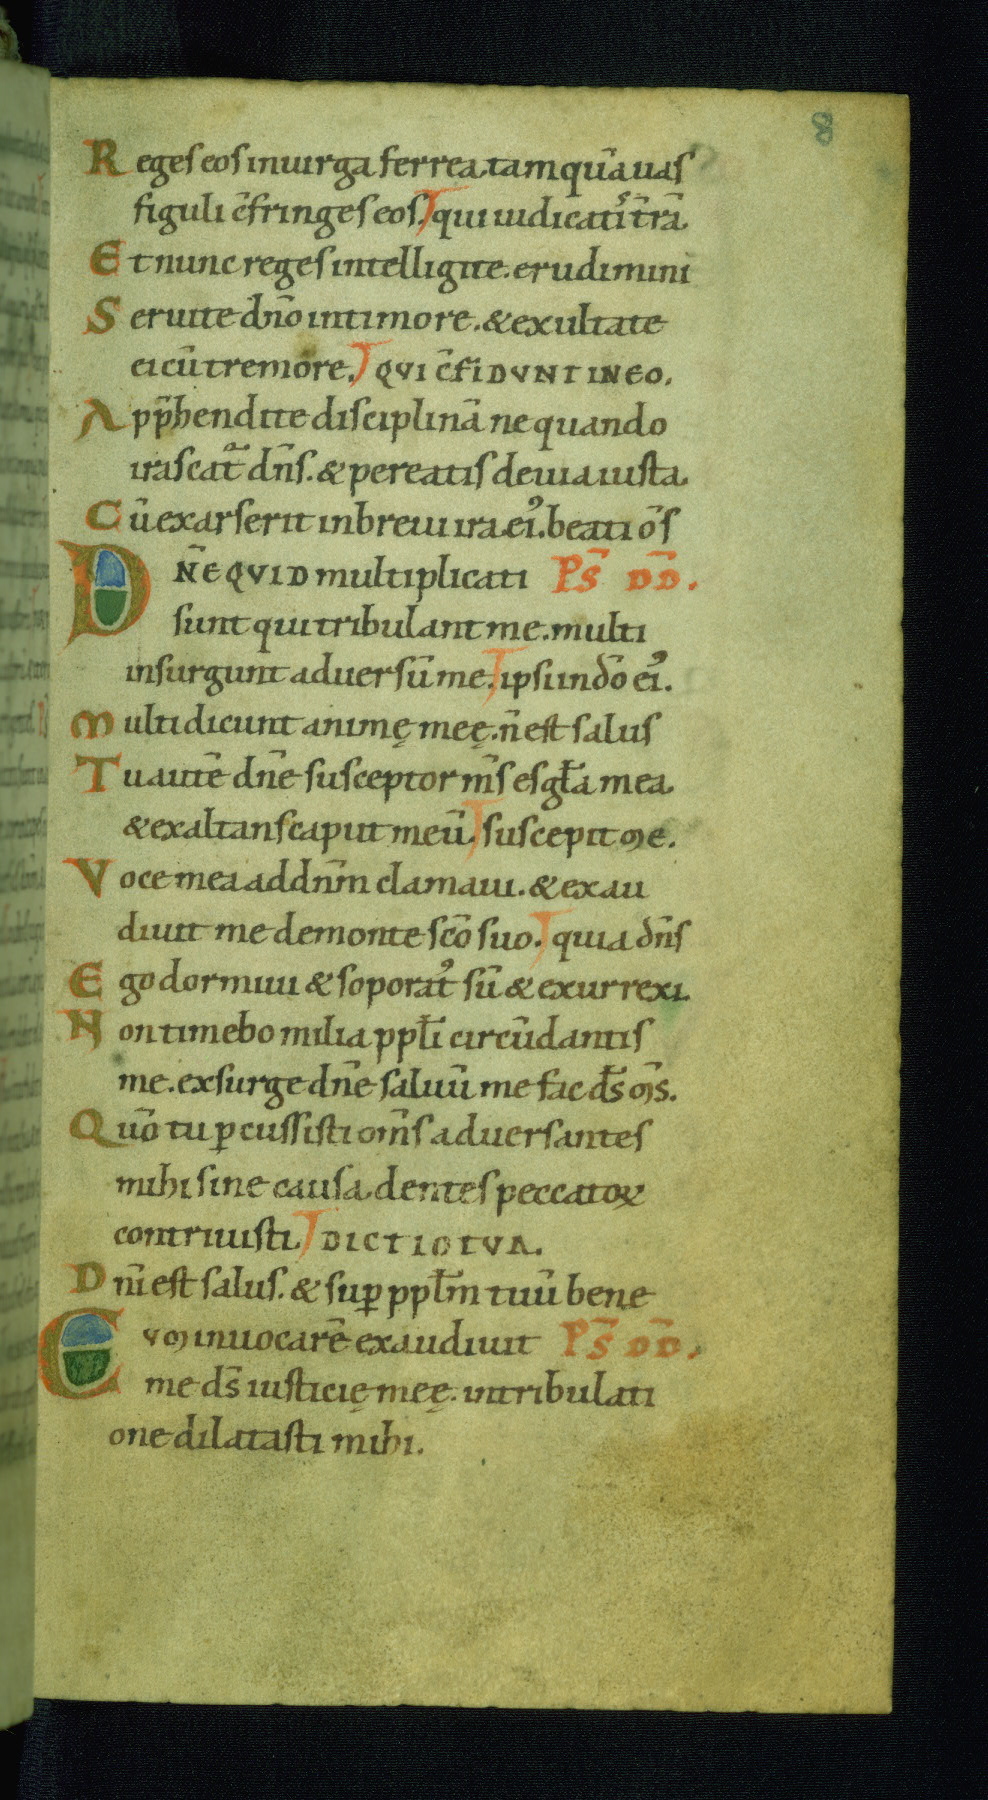 8
Reges eos in uirga ferrea. tamquā uas
figuli c̄fringes eos. qui iudicatis t̄rā.
Et nunc reges intelligite. erudimini
Seruite dn̄o in timore. & exultate
ei cū tremore. QVI c̄fiDVNT IN EO.
App̄hendite disciplinā ne quando
irascat᷑ dn̄s. & pereatis de uia iusta.
Cū exarserit in breui ira eiꝰ. beati om̄s
DN̄E QVID multiplicati PS̄ DD̄.
sunt qui tribulant me. multi
insurgunt aduersū me. ipsi in dō eiꝰ.
Multi dicunt animę meę. n̄ est salus
Tu autē dn̄e susceptor m̄s es gl̄a mea.
& exaltans caput meū. suscepit me.
Voce mea ad dn̄m clamaui. & exau
diuit me de monte sc̄o suo. quia dn̄s
Ego dormiui & soporatꝰ sū & exurrexi.
Non timebo milia ppl̄i circūdantis
me. exsurge dn̄e saluū me fac ds̄ ms̄.
Qūo tu ꝑcussisti om̄s aduersantes
mihi sine causa. dentes peccatoꝝ
contriuisti. DICTIO TVA.
Dn̄i est salus. & suꝑ ppl̄m tuū bene
CVM inuocarē exaudiuit PS̄ DD̄.
me ds̄ iusticię meę. in tribulati
one dilatasti mihi.